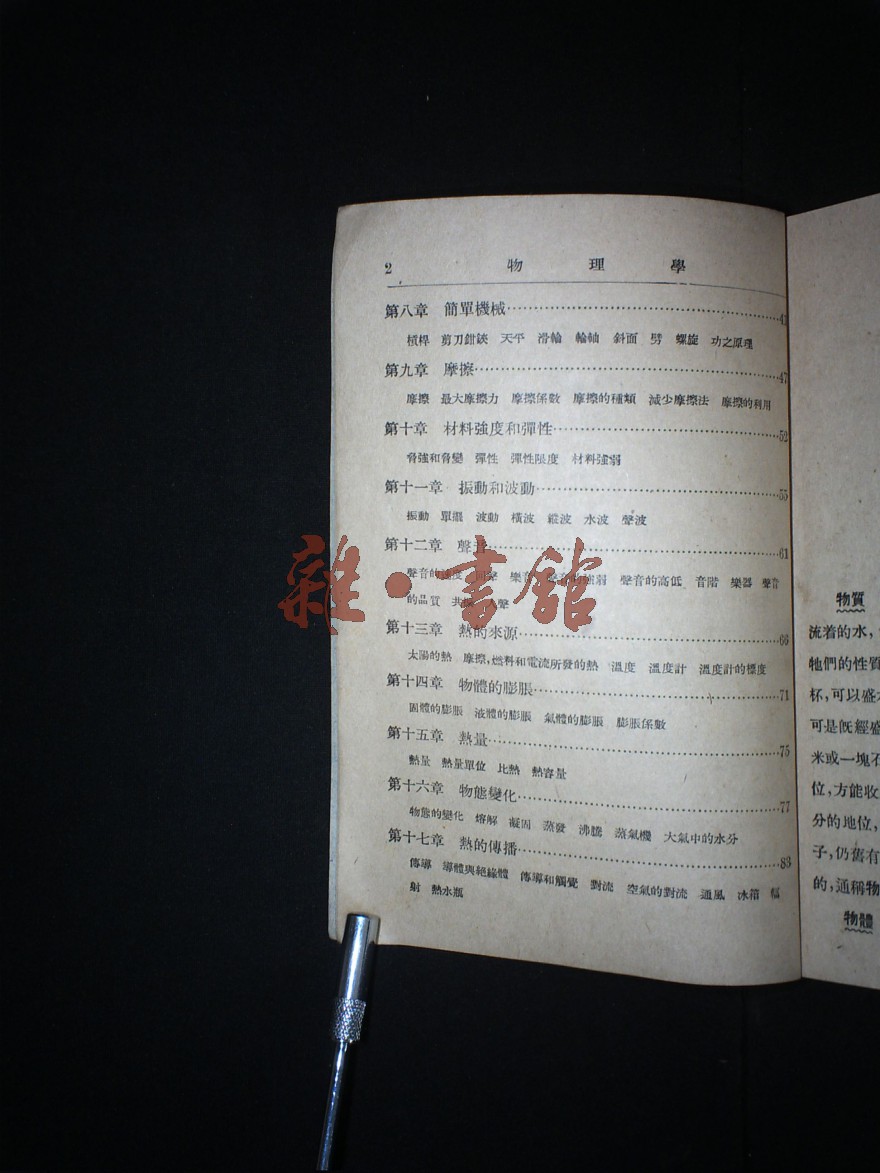 2 物理學
第八章 簡單機械
槓桿 剪刀鉗鋏 天平 滑輪 輪軸 斜面 劈 螺旋 功之原理
第九章 摩擦 47
摩擦 最大摩擦力 摩擦係數 摩擦的種類 減少摩擦法 摩擦的利用
第十章 材料強度和彈性 52
脅強和脅變 彈性 彈性限度 材料強弱
第十一章 振動和波動 55
振動 單擺 波動 橫波 縱波 水波 聲波
第十二章 聲音 61
聲音的速度 回聲 樂音 聲音的強弱 聲音的高低 音階 樂器 聲音
的品質 共鳴 人聲
第十三章 熱的來源 66
太陽的熱 摩擦,燃料和電流所發的熱 溫度 溫度計 溫度計的標度
第十四章 物體的膨脹 71
固體的膨脹 液體的膨脹 氣體的膨脹 膨脹係數
第十五章 熱量 75
熱量 熱量單位 比熱 熱容量
第十六章 物態變化 77
物態的變化 熔解 凝固 蒸發 沸騰 蒸氣機 大氣中的水分
第十七章 熱的傳播 83
傳導 導體與絕緣體 傳導和觸覺 對流 空氣的對流 通風 冰箱 輻
射 熱水瓶
雜·書館
物質
流着的水,
牠們的性質
杯,可以盛
可是旣經盛
米或一塊石
位,方能收
分的地位,
子,仍舊有
的,通稱物
物體